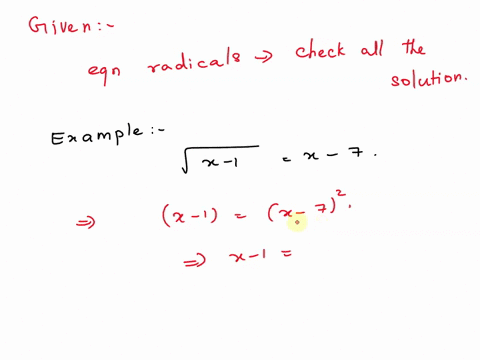 Given:-
eqn radicals → check all the
solution.
Example:-
√x-1 = x-7.
⇒ (x-1) = (x-7)².
⇒ x-1 =